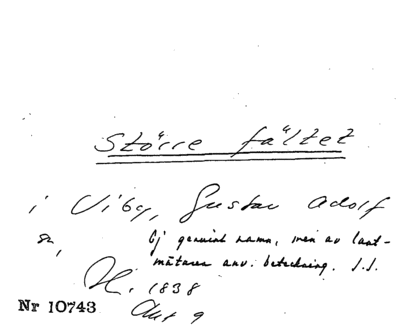 Större fältet
i Viby, Gustav Adolf
sn,
Ej genuint namn, men av lant-
mätaren anv. beteckning. I.I.
H. 1838
Akt 9
Nr 10743